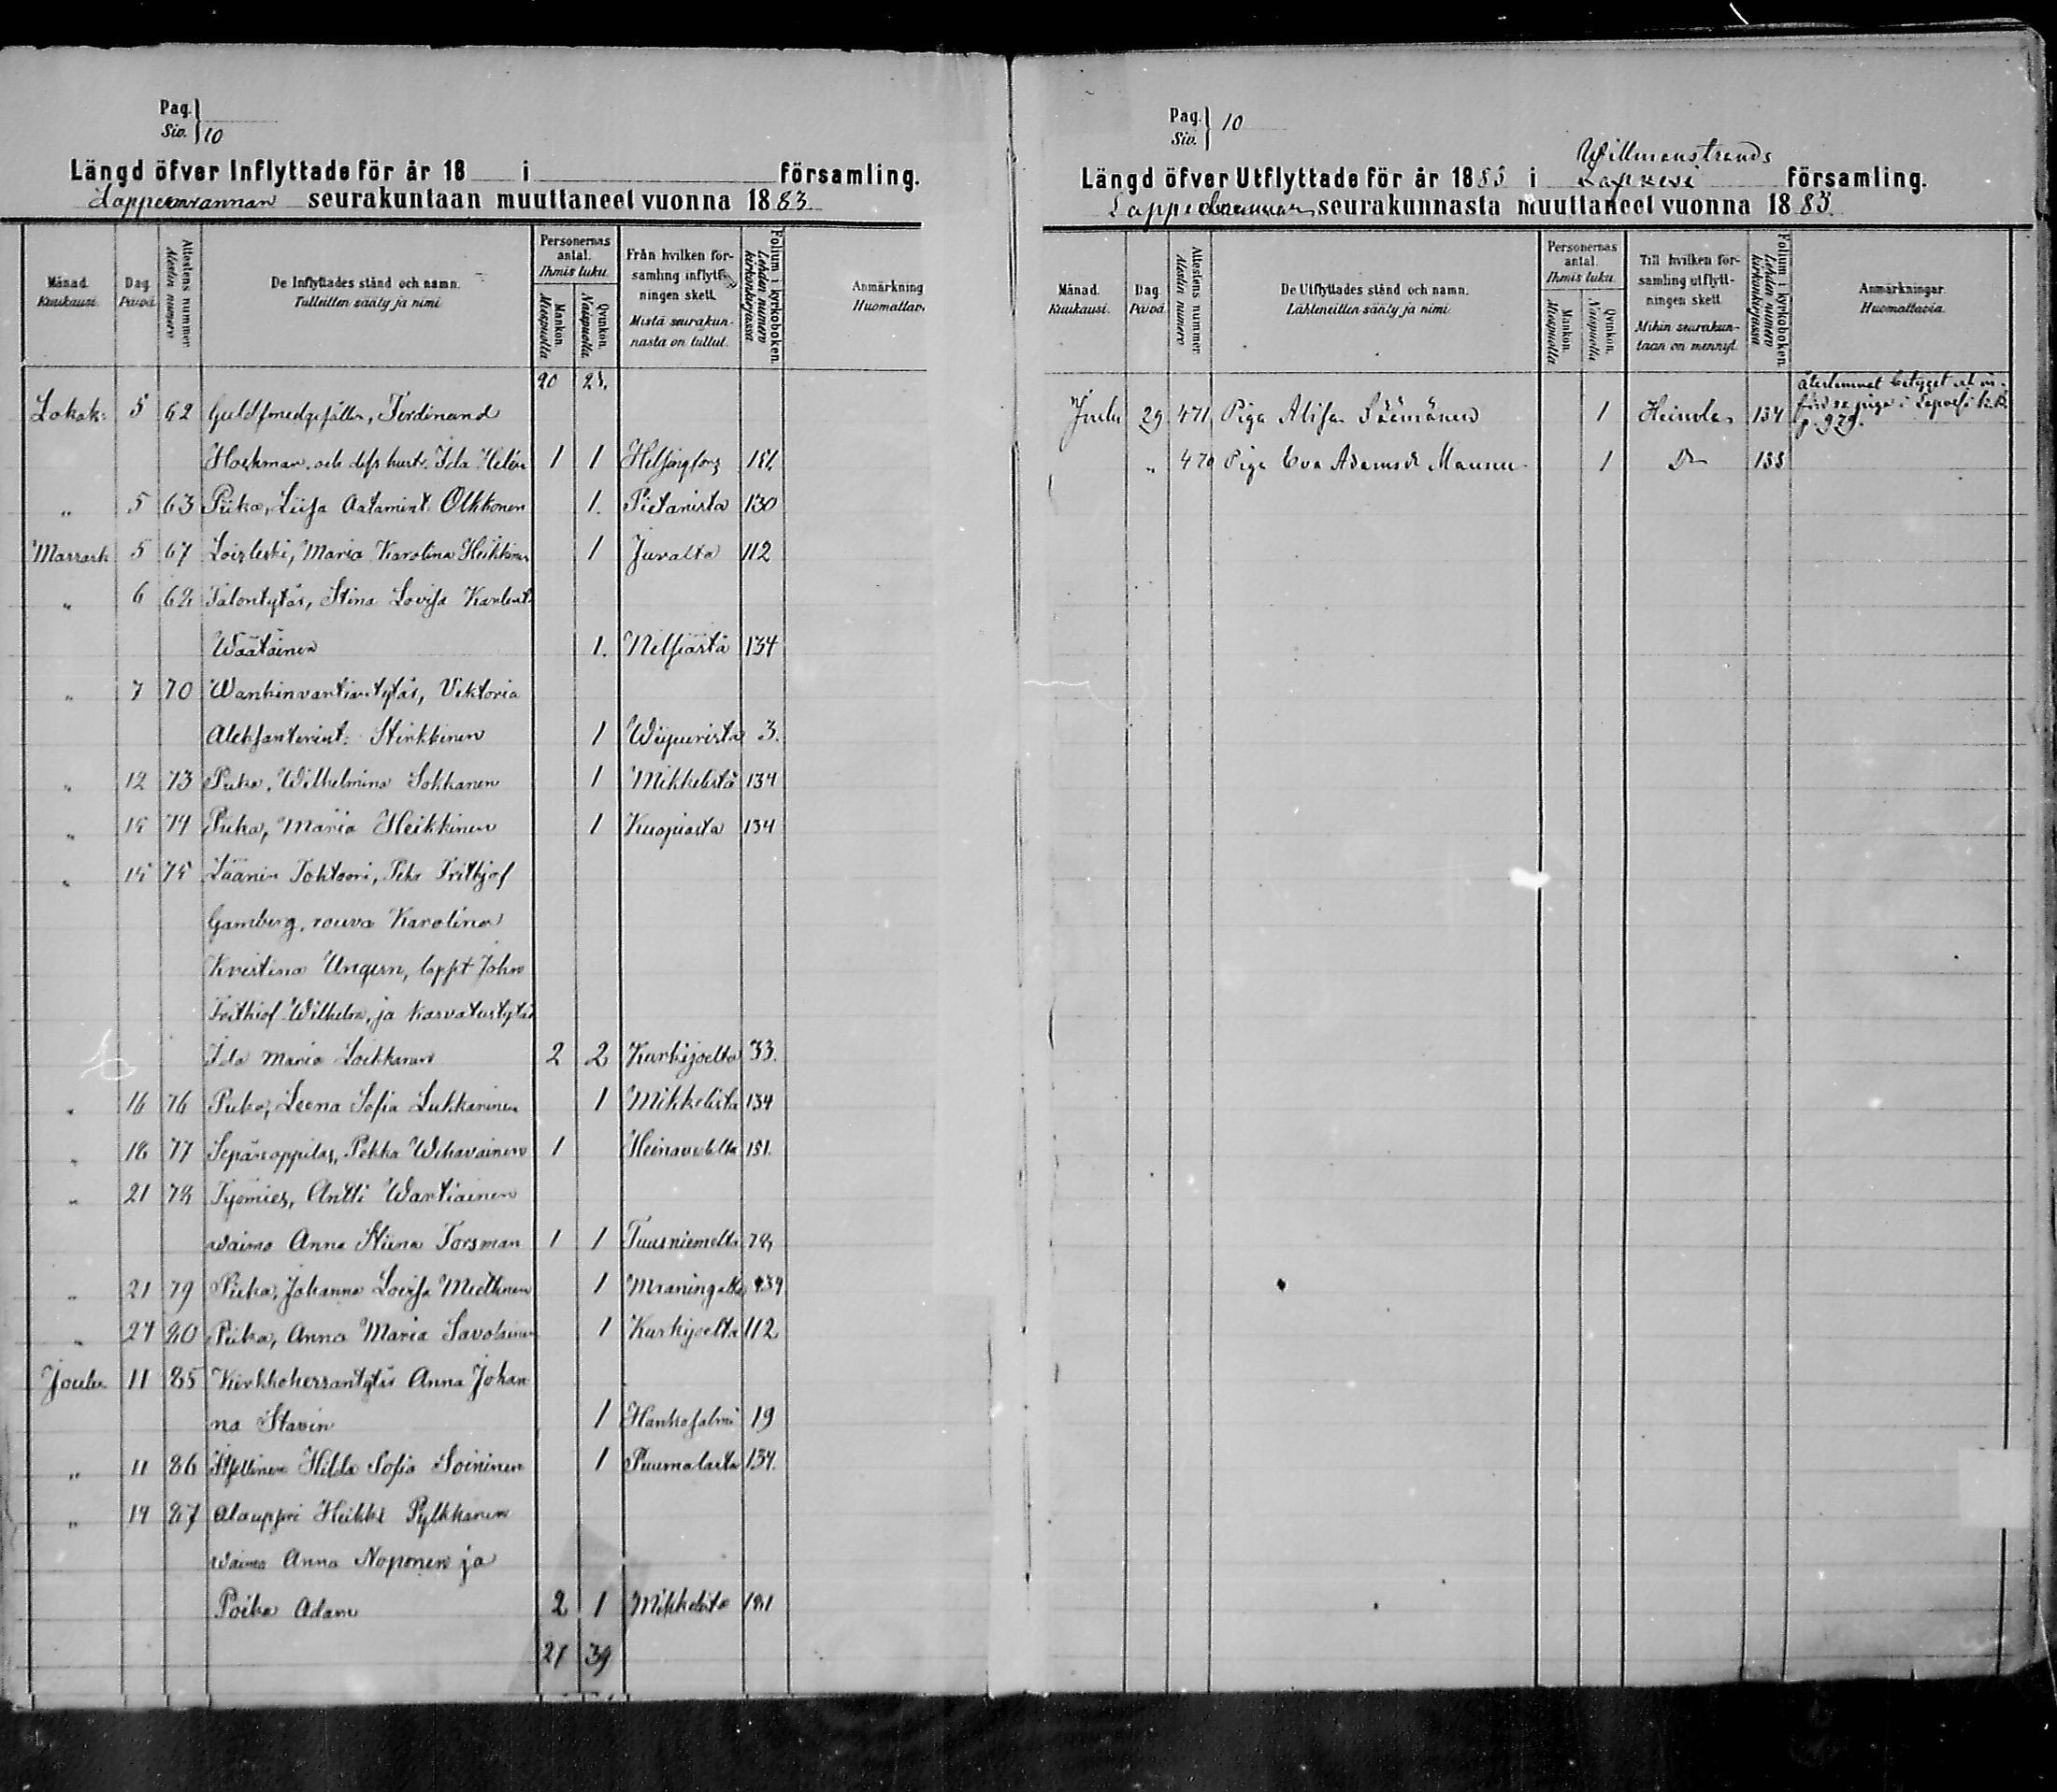 Pag. } 10
Siv.
Längd öfver Inflyttade för år 18 i församling.
Lappeenrannan seurakuntaan muuttaneet vuonna 1883
Månad. Kuukausi.
Dag. Päivä.
Attestens nummer. Alestin numero
De Inflyttades stånd och namn. Tulleitten sääty ja nimi
Personernas antal. Ihmis luku.
Mankön. Miespuolia
Qvinkön. Naispuolia
Från hvilken församling inflyttningen skett. Mistä seurakunnasta on tullut.
Folium i kyrkoboken. Lehden numero kirkonkirjassa
Anmärkning Huomattav
20 25.
Lokak: 5 62 Guldsmedsgesällen, Ferdinand
Hoekman. och dess hustr. Ida Helén 1 1 Helsingfors 181.
„ 5 63 Piika, Liisa Aatamint. Olkkonen 1. Pietarista 130
Marrask 5 67 Maria Karolina Heikkinen 1 Juvalta 112
„ 6 68 Talontytär, Stina Lovisa Kaarlent.
Wäätäinen 1. Nilsiästä 134
„ 7 70 Wanhinvartiantytär, Viktoria
Aleksanterint: Stirkkinen 1 Wiipurista 3.
„ 12 73 Piika, Wilhelmina Sokkanen 1 Mikkelistä 134
„ 15 74 Piika, Maria Heikkinen 1 Kuopiosta 134
„ 15 75 Läänin Tohtoori, Pehr Fritkjof
Gamberg, rouva Karolina
Kristina Ungern, lapset John
Frithiof Wilhelm, ja kasvatustytär
Ida Maria Loikkanen 2 2 Kurkijoelta 33.
„ 16 76 Piika, Leena Sofia Lukkarinen 1 Mikkelistä 134
„ 18 77 Sepänoppilas, Pekka Wihavainen 1 Heinävedeltä 181.
„ 21 78 Työmies, Antti Wartiainen
waimo Anna Stiina Forsman 1 1 Tuusniemeltä 78,
„ 21 79 Piika, Johanna Lovisa Miettinen 1 Maaningalta 134
„ 27 80 Piika, Anna Maria Savolainen 1 Kurkijoelta 112
Joulu 11 85 Kirkkoherrantytär Anna Johan
na Stavén 1 Hankasalmi 19
„ 11 86 Itsellinen Hilda Sofia Soininen 1 Puumalasta 134.
„ 14 87 Alaupseri Heikki Pylkkänen
waimo Anna Noponen ja
Poika Adam 2 1 Mikkelistä 181
27 39
Pag. } 10
Siv.
Willmanstrands
Längd öfver Utflyttade för år 1883 i Lapvesi församling.
Lappeenrannan seurakunnasta muuttaneet vuonna 1883.
Månad. Kuukausi.
Dag. Päivä
Attestens nummer. Alestin numero
De Utflyttades stånd och namn. Lähteneitten sääty ja nimi
Personernas antal. Ihmis luku.
Mankön. Miespuolia
Qvinkön. Naispuolia
Till hvilken församling utflyttningen skett. Mihin seurakuntaan on mennyt.
Folium i kyrkoboken. Lehden numero kirkonkirjassa
Anmärkningar. Huomattavia.
återlemnat betyget
Joulu 29 471 Piga Alisa Säämänen 1 Heinola 134 p. 979.
„ 470 Piga Eva Adamsdr Mannu 1 Do 135